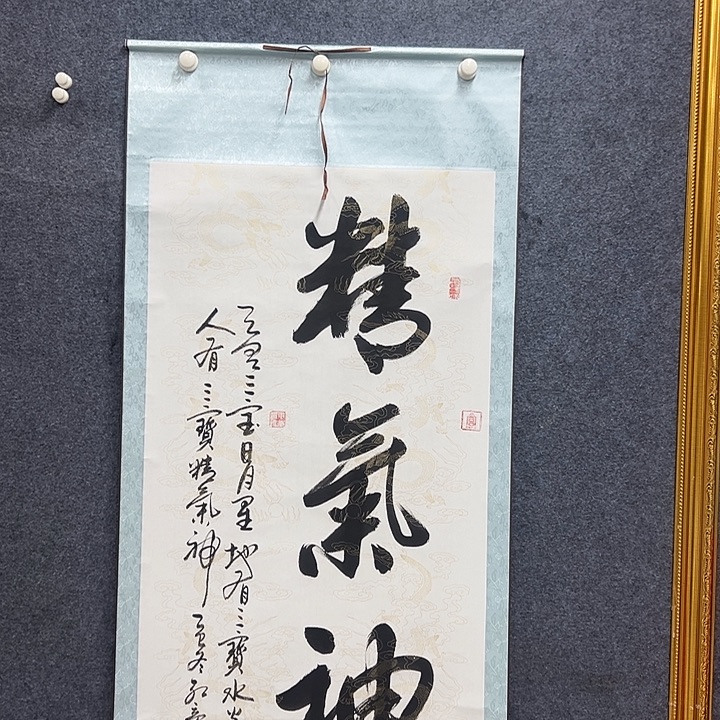 精氣神
天有三宝日月星地有三寶水火
人有三寶精氣神